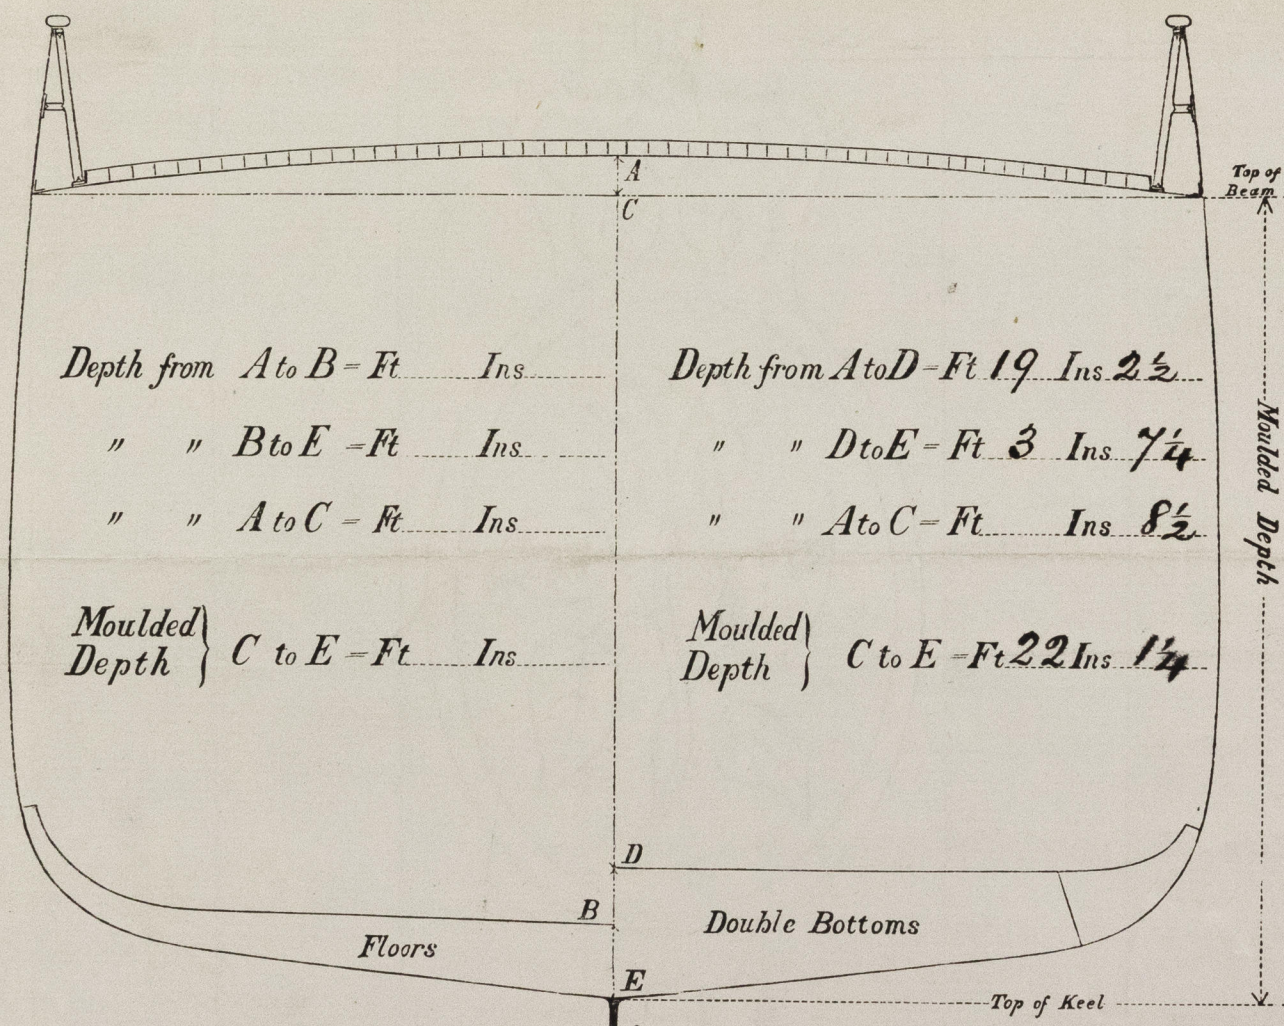 A
Top of
Beam
C
Depth from A to B = Ft Ins
" " B to E = Ft Ins
" " A to C = Ft Ins
Moulded
Depth } C to E = Ft Ins
Depth from A to D = Ft 19 Ins 2½
" " D to E = Ft 3 Ins 7¼
" " A to C = Ft Ins 8½
Moulded
Depth } C to E = Ft 22 Ins 1¼
Moulded Depth
D
B
Double Bottoms
Floors
E
Top of Keel